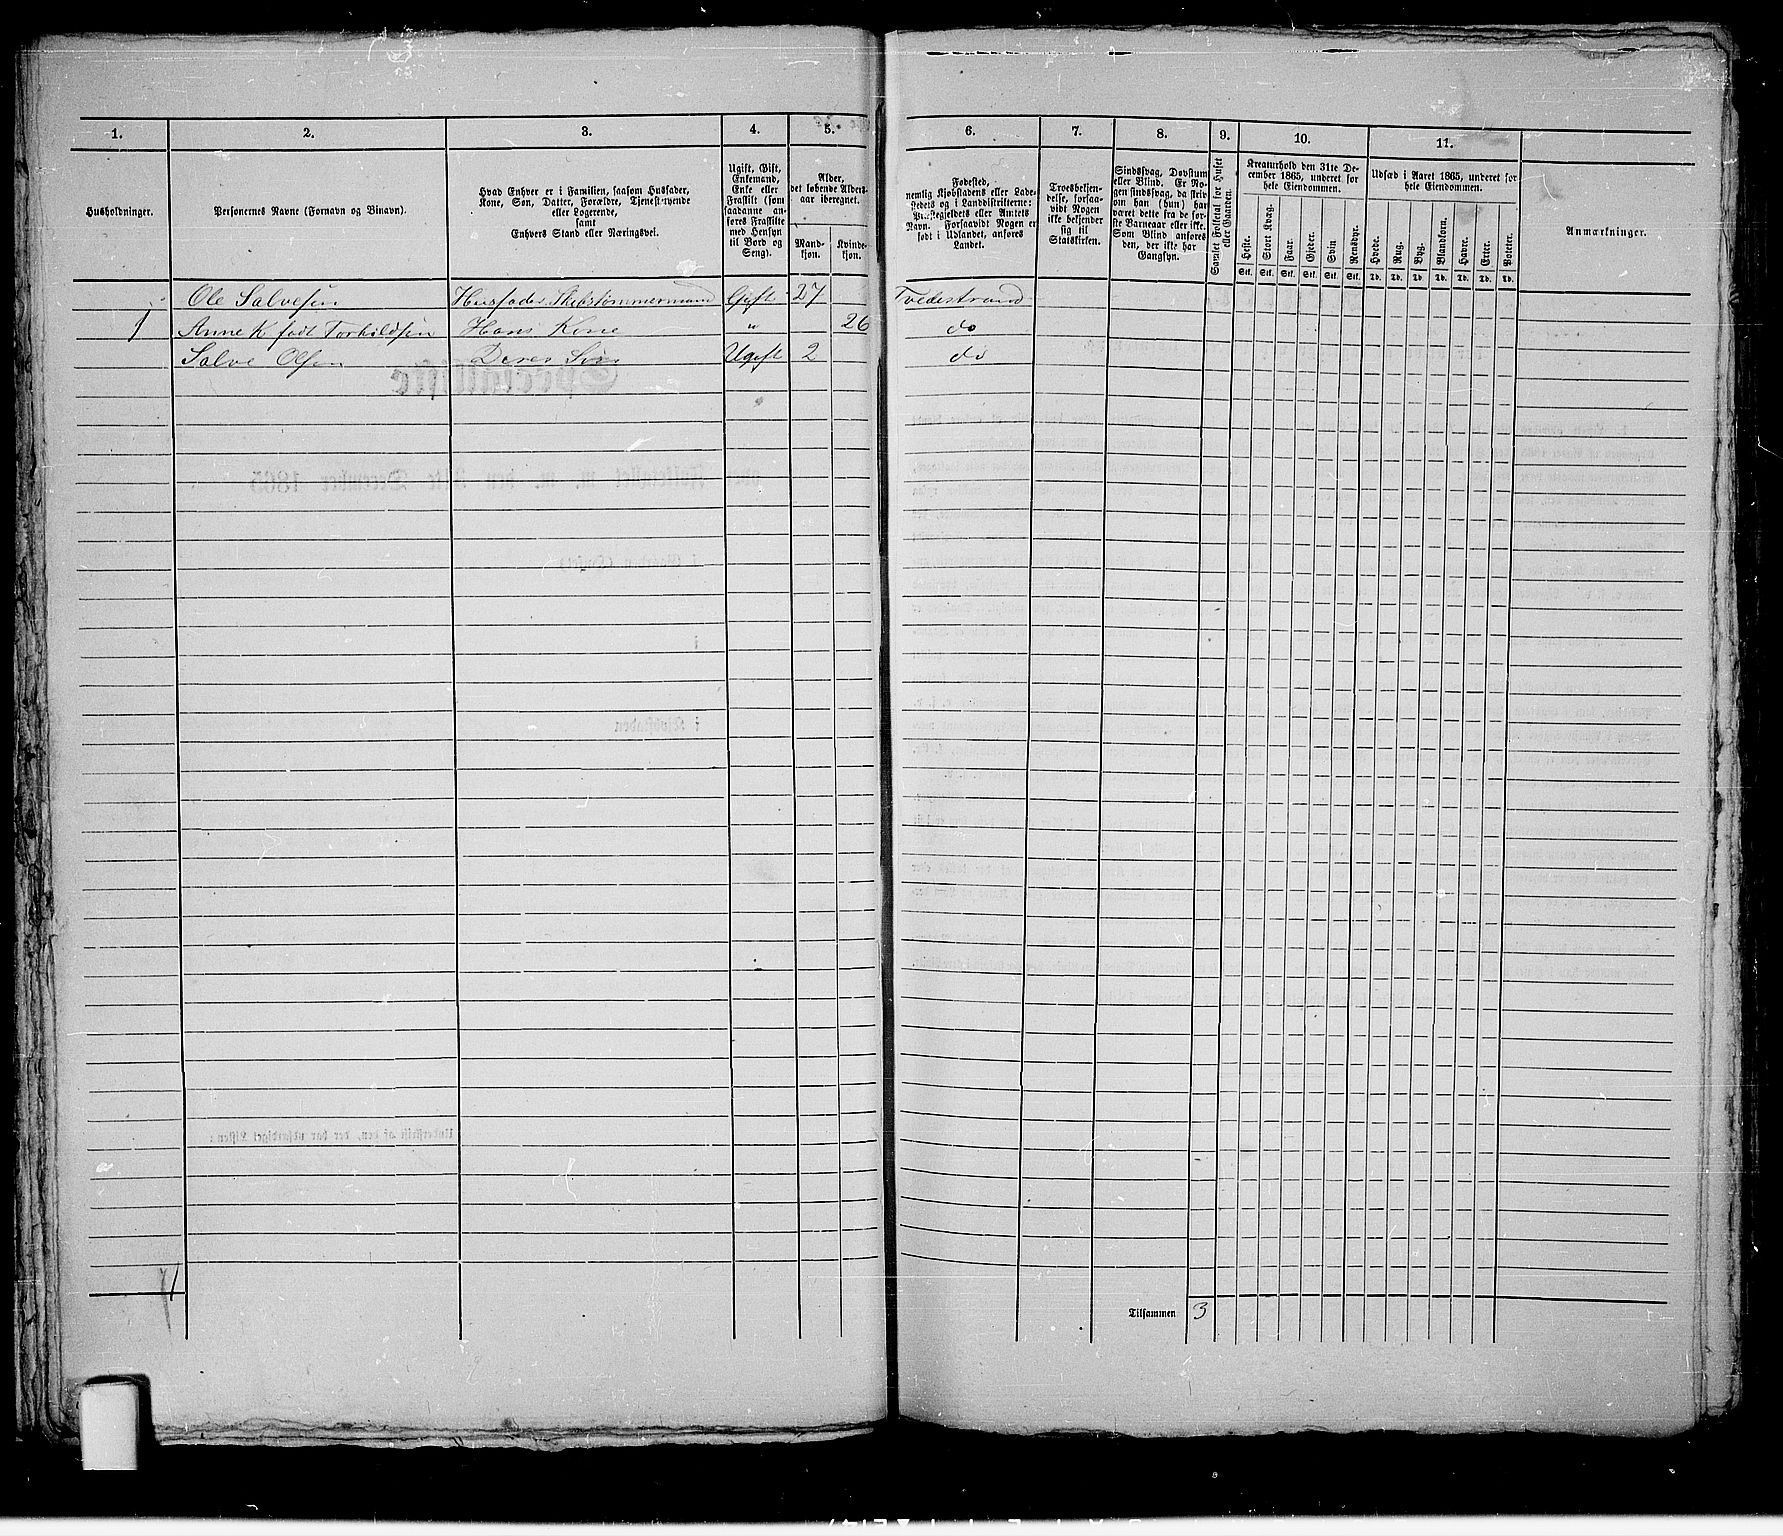 1. 2. 3. 4. 5. 6. 7. 8. 9. 10. 11.
Husholdninger.
Personernes Navne (Fornavn og Binavn).
Hvad Enhver er i Familien, saasom Husfader,
Kone, Søn, Datter, Forældre, Tjenestetyende
eller Logerende,
samt
Enhvers Stand eller Næringsvei.
Ugift, Gift,
Enkemand,
Enke eller
Fraskilt (som
saadanne an-
føres Fraskilte
med Hensyn
til Bord og
Seng).
Alder,
det løbende Alders-
aar iberegnet.
Mand-
kjøn.
Kvinde-
kjøn.
Fødested,
nemlig Kjøbstadens eller Lade-
stedets og i Landdistrikterne:
Præstegjeldets eller Amtets
Navn. Forsaavidt Nogen er
født i Udlandet, anføres
Landet.
Troesbekjen-
delse, forsaa-
vidt Nogen
ikke bekjender
sig til
Statskirken.
Sindssvag, Døvstum
eller Blind. Er No-
gen sindssvag, da skriv
om han (hun) har
været dette fra de før-
ste Barneaar eller ikke.
Som Blind anføres
den, der ikke har
Gangsyn.
Samlet Folketal for Huset
eller Gaarden.
Kreaturhold den 31te De-
cember 1865, underet for
hele Eiendommen.
Heste. Stort Kvæg. Faar. Gjeder. Svin Rensdyr.
Stk. Stk. Stk. Stk. Stk. Stk.
Udsæd i Aaret 1865, underet for
hele Eiendommen.
Hvede. Rug. Byg. Blandkorn. Havre. Erter. Poteter.
Td. Td. Td. Td. Td. Td. Td.
Anmærkninger.
Ole Salvesen Husfader Skibstømmermand Gift 27 Tvedestrand
1 Anne K. født Torkildsen Hans Kone " 26 do
Salve Olsen Deres Søn Ugift 2 do
1
Tilsammen 3